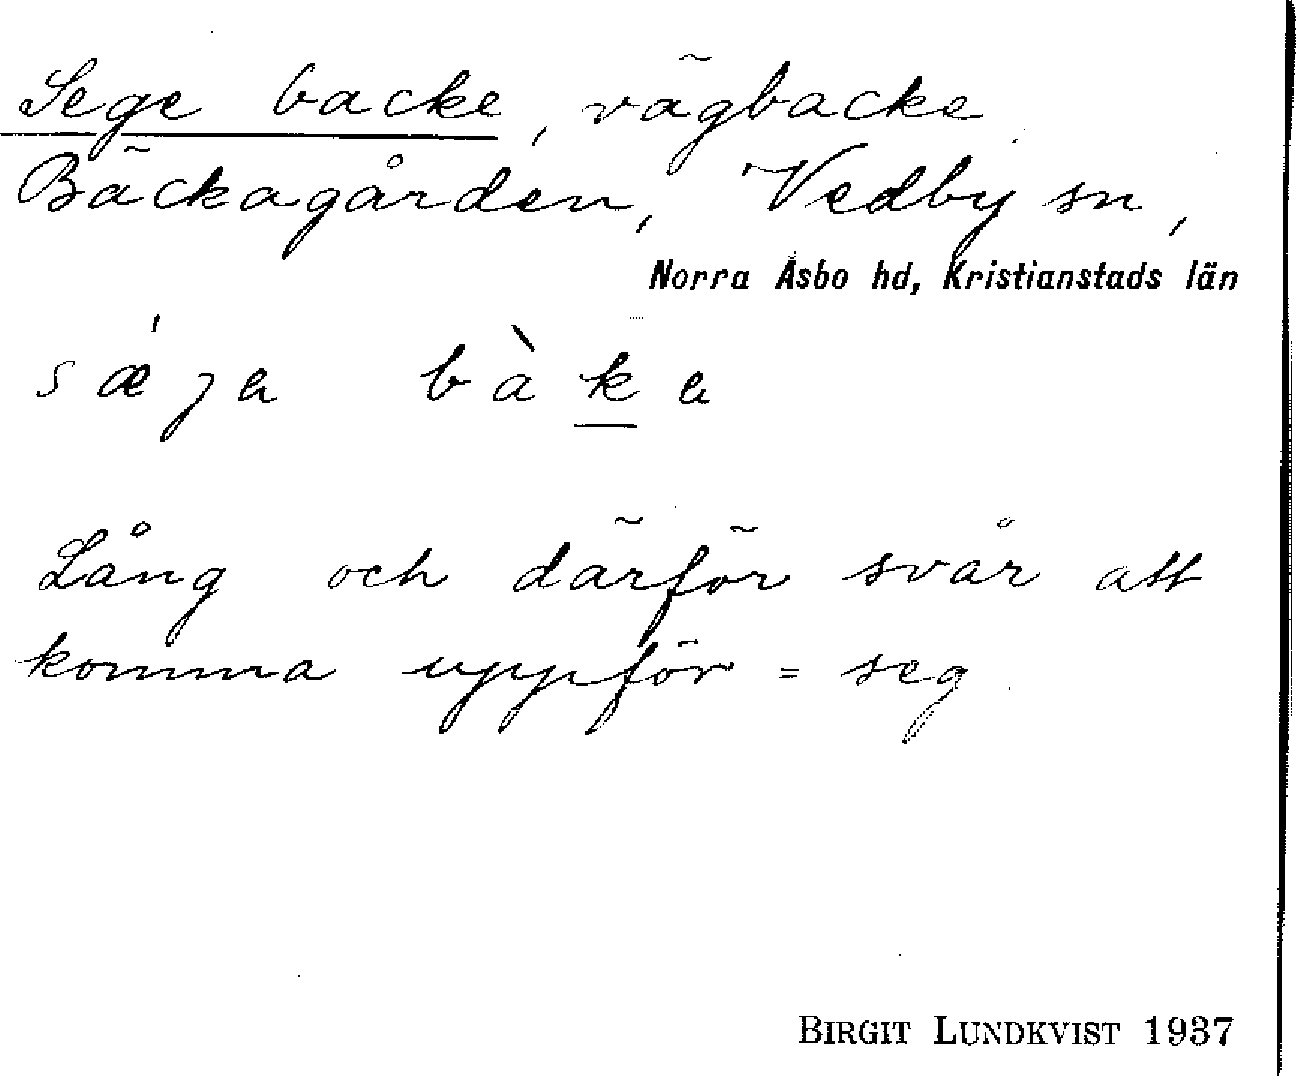 Sege backe, vägbacke
Bäckagården, Vedby sn,
Norra Åsbo hd, Kristianstads län
sǽja bàka
Lång och därför svår att
komma uppför = seg
BIRGIT LUNDKVIST 1937